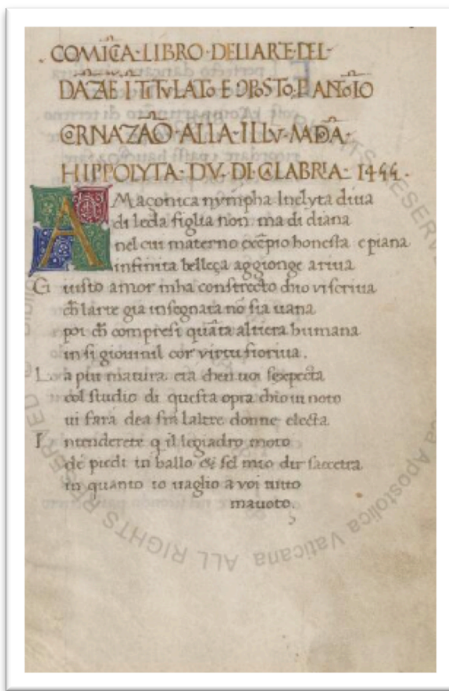 COMĪCĀ·LIBRO·DELLARTE·DEL·
DĀZAE ĪTITVLATO E ƆPOSTO P ANTŌIO
CŌRNAZĀO·ALLA·ILLV·MADĀ·
HIPPOLYTA·DV·DI·CLABRIA·1455·
AMaçonica nympha Inclyta diua
di leda figlia non ma di diana
nel cui materno exēpio honesta e piana
infinita belleça aggionge ariua
Giusto amor mha constrecto chio ui scriua
ch larte gia insegnata nō sia uana
poi ch compresi quāta altiera humana
in si giouinil cor virtu fioriua.
La piu matura eta chen uoi sexpecta
col studio di questa opra chio ui noto
ui fara dea fra laltre donne electa
Intenderete q il legiadro moto
de piedi in ballo e sel mio dir saccetta
in quanto io uaglio a voi tutto
mauoto.
Apostolica Vaticana ALL RIGHTS RESERVED